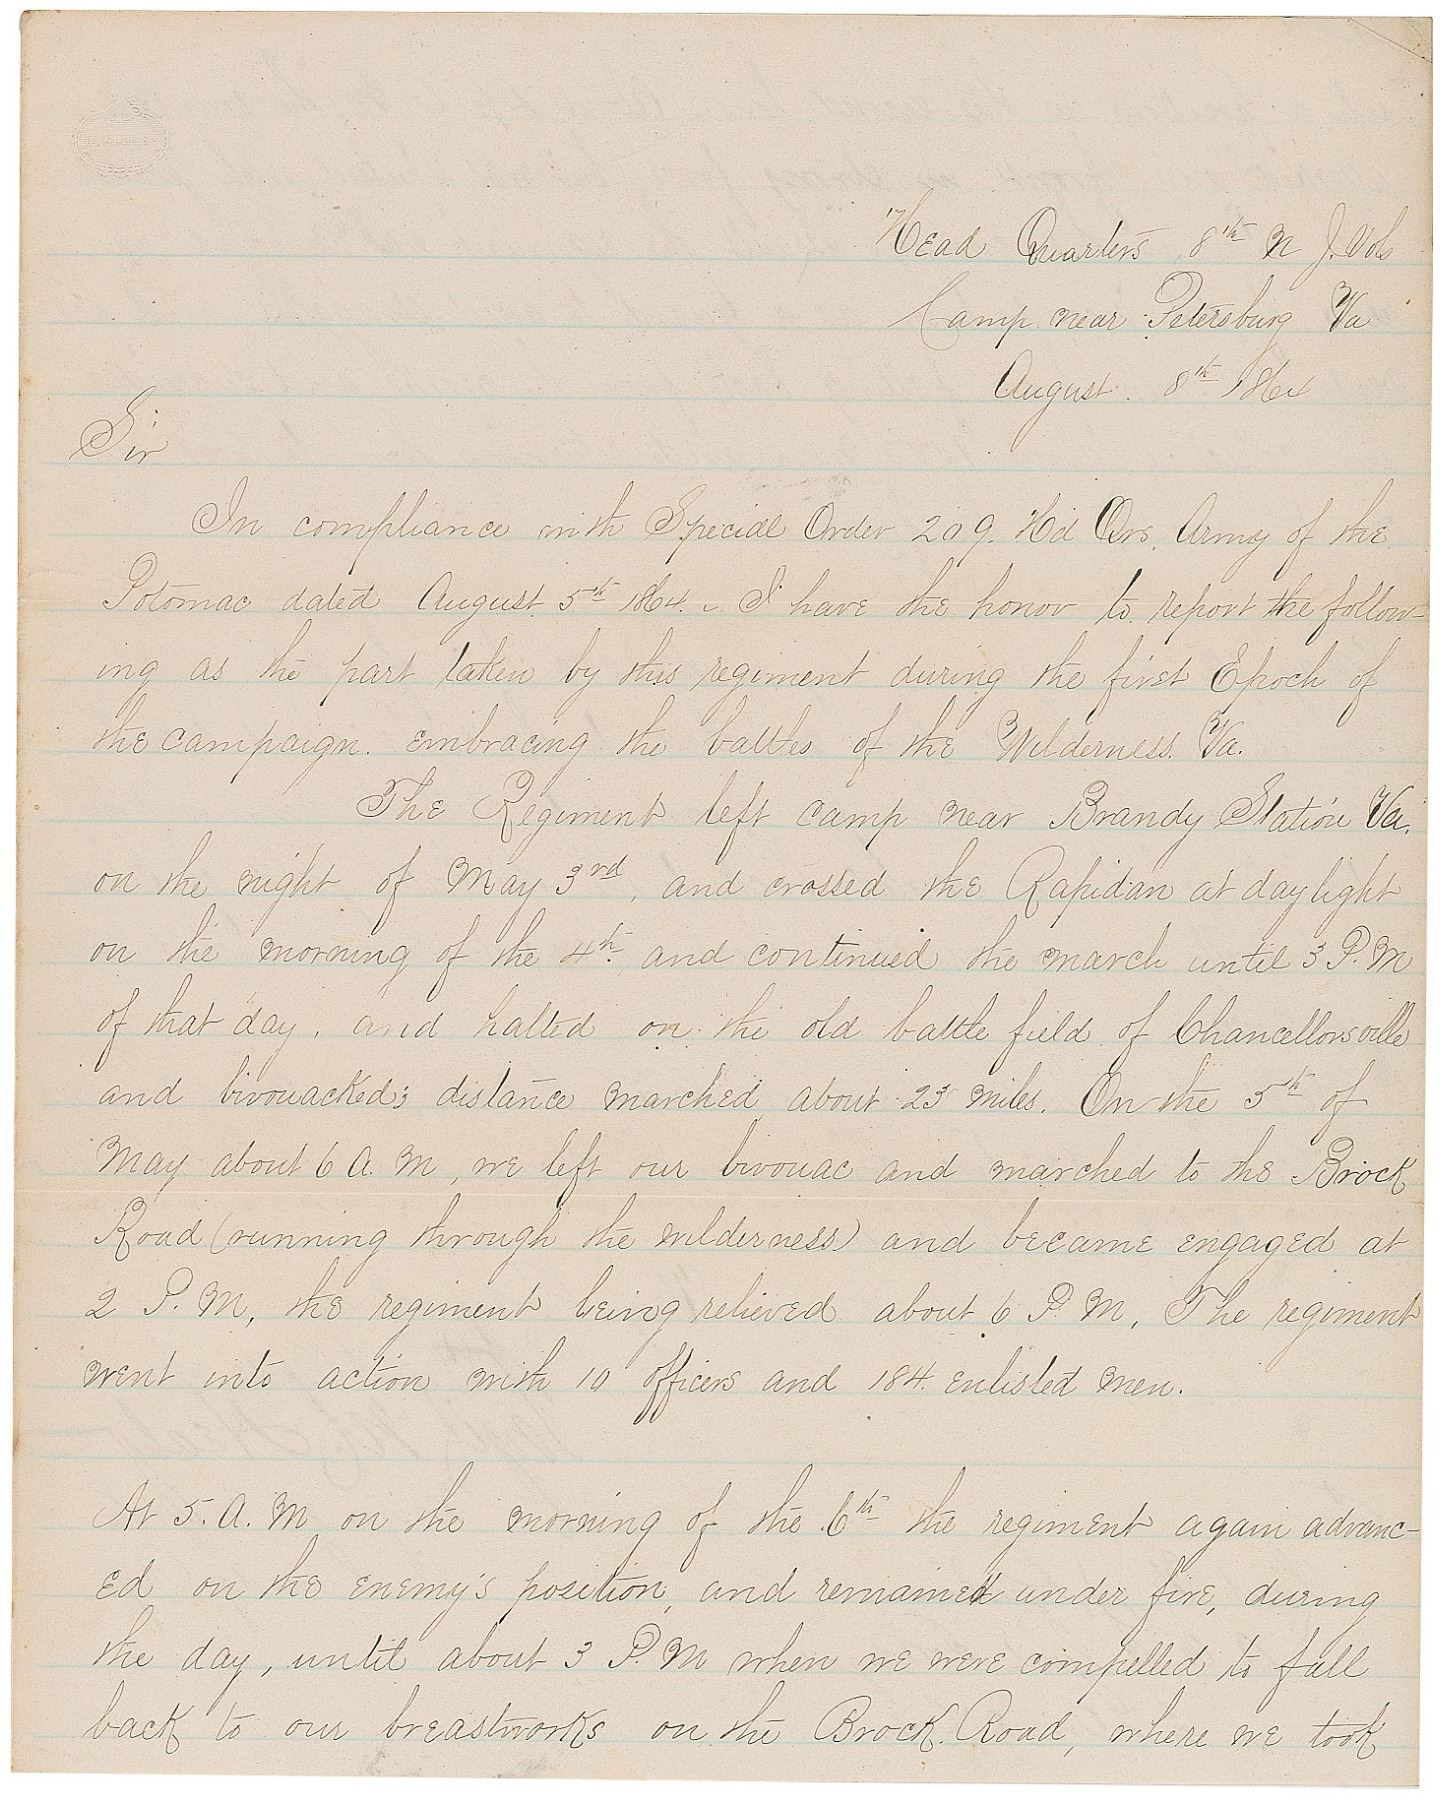 Head Quarters 8th N J. Vols
Camp near Petersburg Va
August. 8th 1864
Sir
In compliance with Special Order 209. Hd Qrs. Army of the
Potomac dated August 5th 1864. I have the honor to report the follow-
ing as the part taken by this regiment during the first Epoch of
the campaign. embracing the battles of the Wilderness. Va.
The Regiment left camp near Brandy Station Va.
on the night of May 3rd, and crossed the Rapidan at daylight
on the morning of the 4th. and continued the march until 3 P.M
of that day. and halted on the old battle field of Chancellorsville
and bivouacked; distance marched about 23 miles. On the 5th of
May about 6 A. M, we left our bivouac and marched to the Brock
Road (running through the wilderness) and became engaged at
2 P. M, the regiment being relieved about 6 P. M, The regiment
went into action with 10 officers and 184. enlisted men.
At 5. A. M on the morning of the 6th the regiment again advanc-
ed on the enemy's position, and remained under fire, during
the day, until about 3 P. M when we were compelled to fall
back to our breastworks on the Brock. Road, where we took